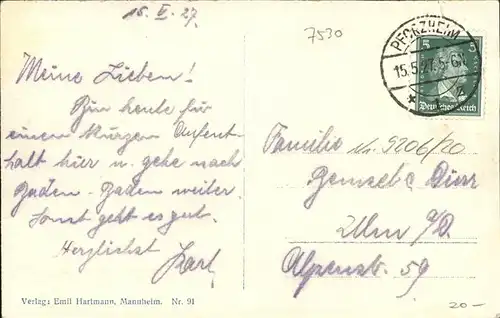 15. V. 27.
7530
PFORZHEIM
15.5.27.5-6N
5 5
Deutsches Reich
Meine Lieben!
Bin heute für
einen kurzen Aufent-
halt hier u. gehe nach
Baden-Baden weiter.
Sonst geht es gut.
Herzlichst
Karl
Familie
Nr. 9206/20
Dürr
Ulm a/D.
Alpenstr. 59
Verlag: Emil Hartmann, Mannheim. Nr. 91
20-